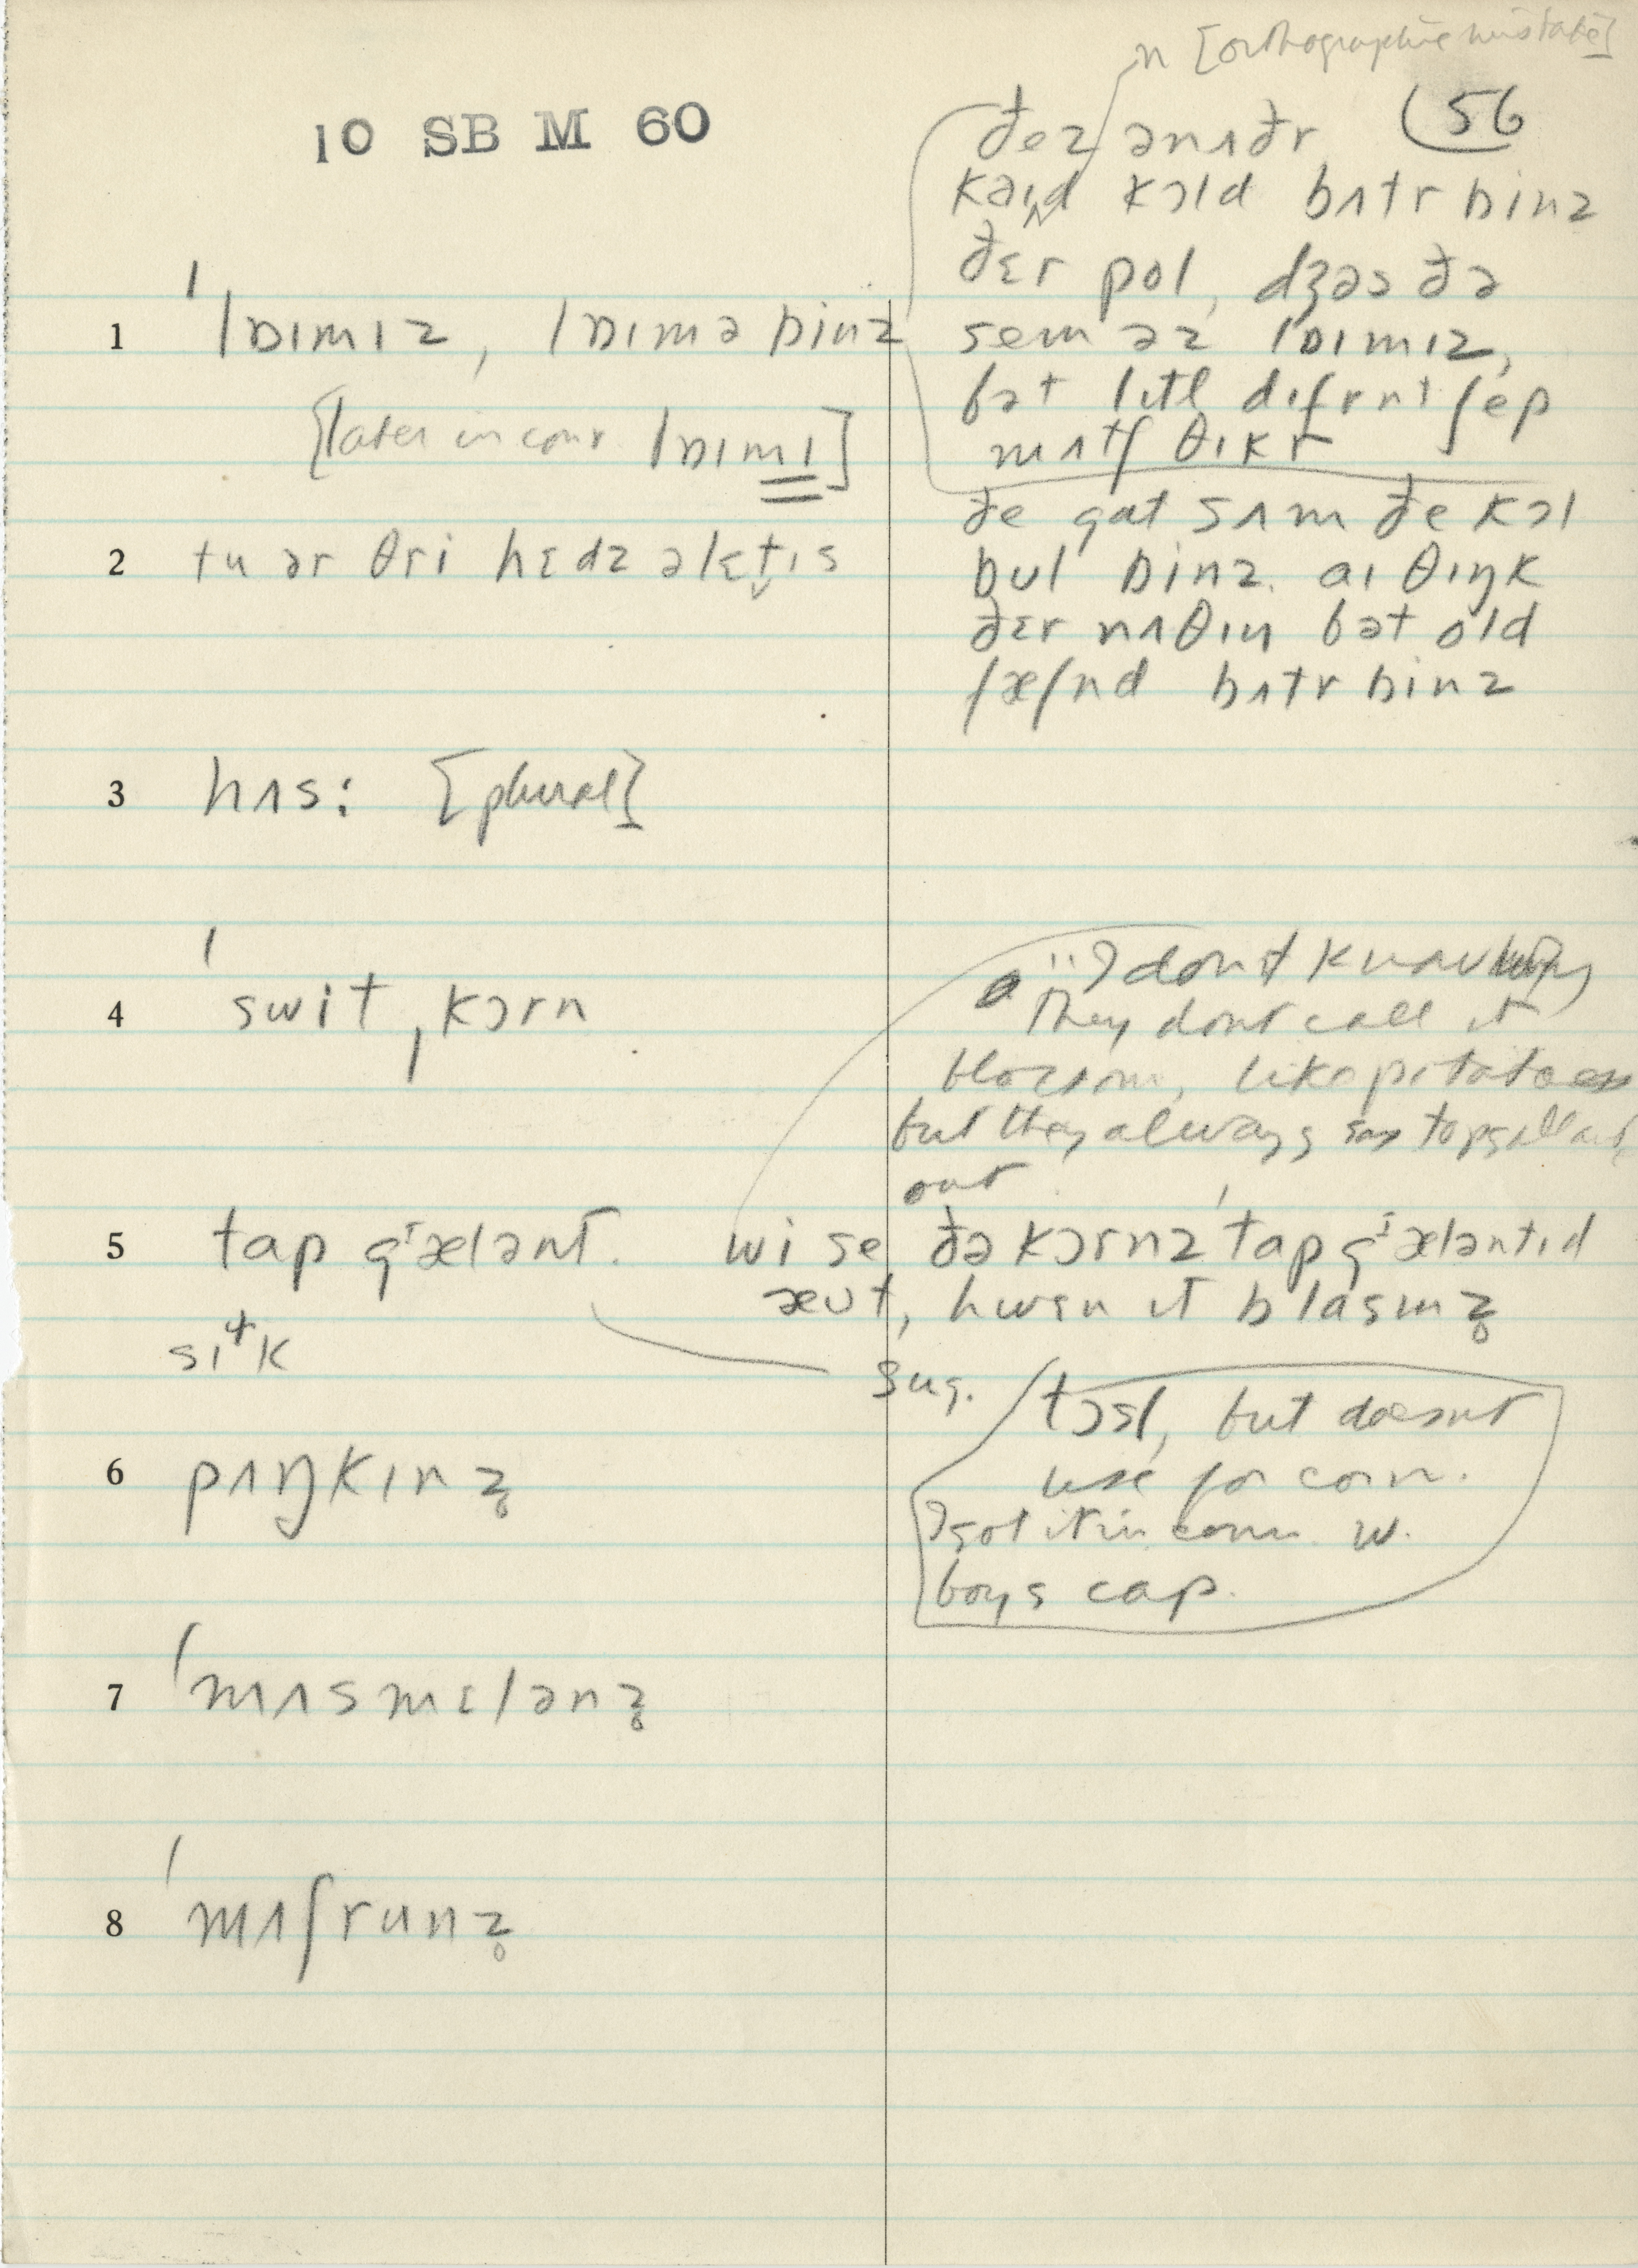 n [orthographic mistake]
56
10 SB M 60
ðez ənʌðr
kəɪnd kɔld bʌtr binz
ðɛr pol, dʒəs ðə
sem əz lɒɪmɪz,
bət lɪtl dɪfrnt ʃep
mʌtʃ θɪkr
1 ˈlɒɪmɪz, lɒɪmə binz
[later in conv. lɒɪmɪ]
ðe gat sʌm ðe kɔl
bul binz. aɪ θɪŋk
ðɛr nʌθɪŋ bət old
fæʃnd bʌtr binz
2 tu ər θri hɛdz əlɛt̬ɪs
3 hʌs: [plural]
4 ˈswitˌkɔrn
"I don't know why
they dont call it
blossom, like potatoes
but they always say topgallant
out
5 tap gᶦælənt. wi se ðə kɔrnz ˈtap gᶦæləntɪd
æʊt, hwɛn ɪt blasmz̥
sɪ⁺k
sug. tɔsl, but doesnt
use for corn.
I got it in conn. w.
boys cap.
6 pʌŋkɪnz̥
7 ˈmʌsmɛlənz̥
8 ˈmʌʃrunz̥